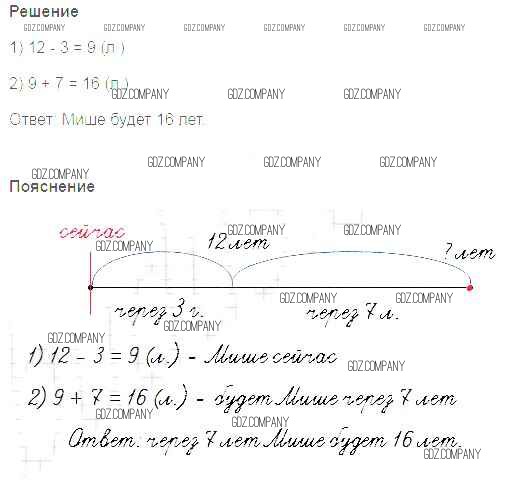 Решение
GDZ.COMPANY GDZ.COMPANY GDZ.COMPANY GDZ.COMPANY GDZ.COMPANY GDZ.COMPANY
1) 12 - 3 = 9 (л.)
2) 9 + 7 = 16 (л.)
GDZ.COMPANY GDZ.COMPANY GDZ.COMPANY
Ответ: Мише будет 16 лет.
GDZ.COMPANY GDZ.COMPANY GDZ.COMPANY
GDZ.COMPANY
Пояснение
сейчас
GDZ.COMPANY GDZ.COMPANY
12 лет
GDZ.COMPANY
? лет
GDZ.COMPANY GDZ.COMPANY
через 3 г.
через 7 л.
GDZ.COMPANY
GDZ.COMPANY
1) 12 - 3 = 9 (л.) - Мише сейчас
GDZ.COMPANY
2) 9 + 7 = 16 (л.) - будет Мише через 7 лет
GDZ.COMPANY GDZ.COMPANY
Ответ: через 7 лет Мише будет 16 лет.
GDZ.COMPANY